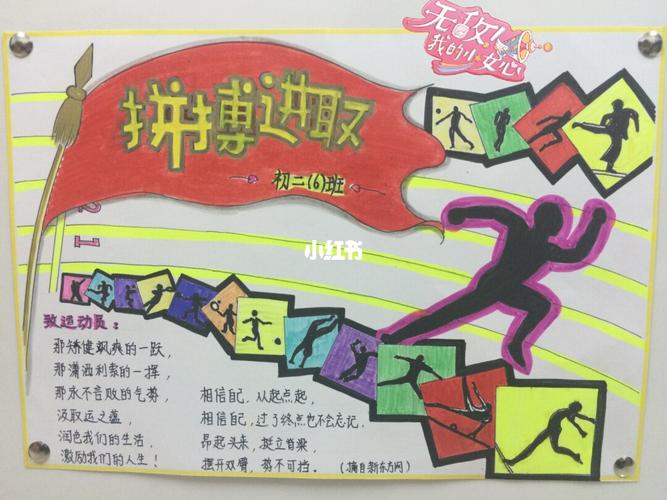 无敌!
我的小女心
拼搏进取
初二(6)班
小红书
致运动员:
那矫健飒爽的一跃,
那潇洒利索的一挥,
那永不言败的气势,
汲取运之蕴,
润色我们的生活,
激励我们的人生!
相信自己,从起点起,
相信自己,过了终点也不会忘记,
昂起头来,挺立脊梁,
摆开双臂,势不可挡.
(摘自新东方网)